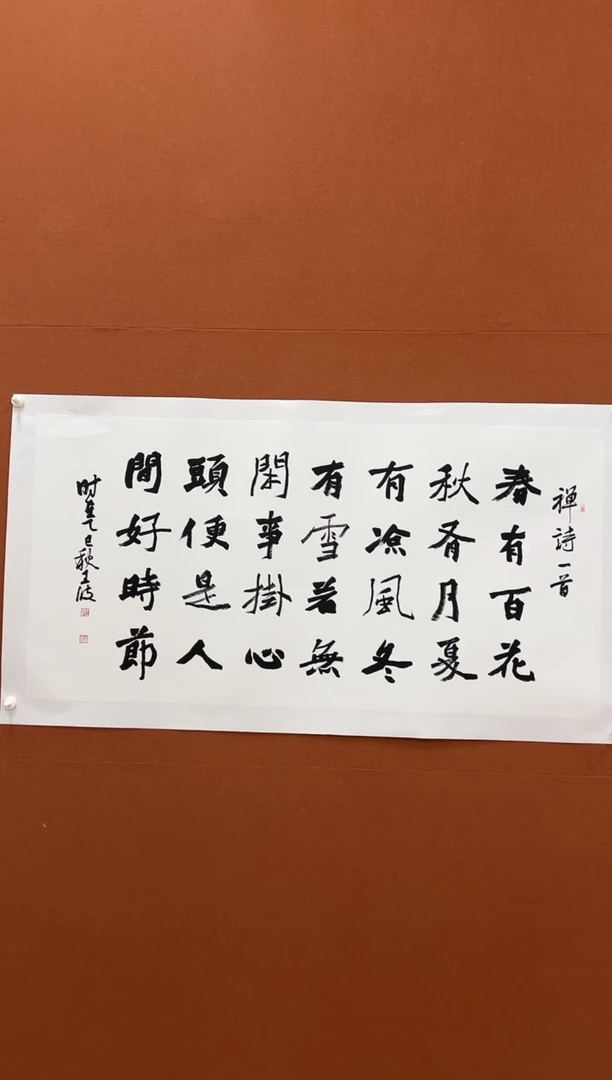 禅詩一首
春有百花
秋有月夏
有涼風冬
有雪若無
閑事掛心
頭便是人
間好時節
时在乙巳秋王波